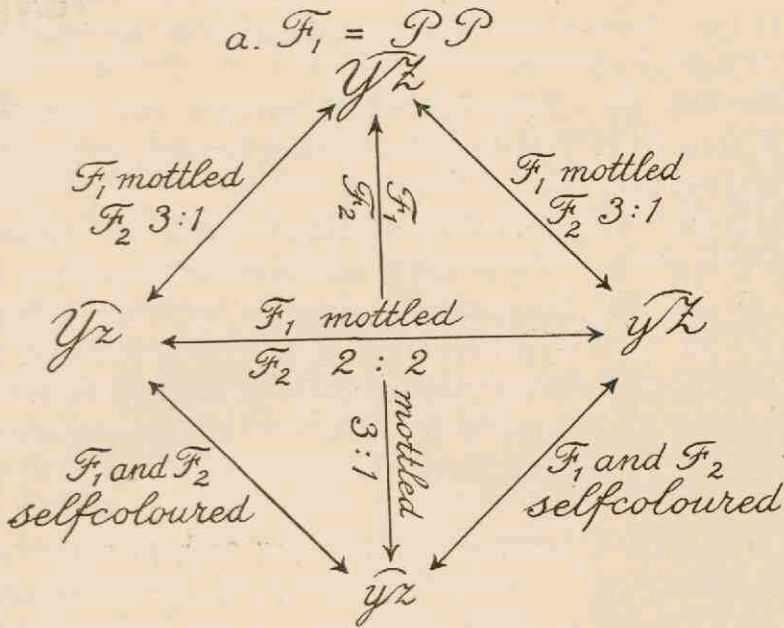 a. F₁ = PP
YZ
F₁ mottled
F₂ 3:1
F₁ mottled
F₂ 3:1
F₁
F₂
Yz
F₁ mottled
F₂ 2 : 2
yZ
mottled
3:1
F₁ and F₂
selfcoloured
F₁ and F₂
selfcoloured
yz